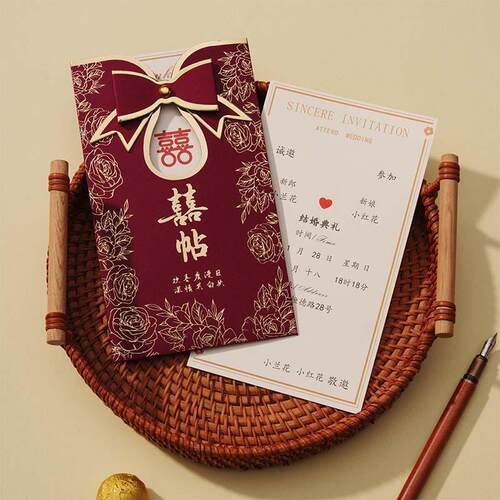 囍
囍
帖
欢喜度漫日
深情共白头
SINCERE INVITATION
ATTEND WEDDING
诚邀 参加
新郎 新娘
小兰花 小红花
结婚典礼
时间/Time
1 月 28 日 星期日
月 十八 18时18分
Address
德路28号
小兰花 小红花 敬邀